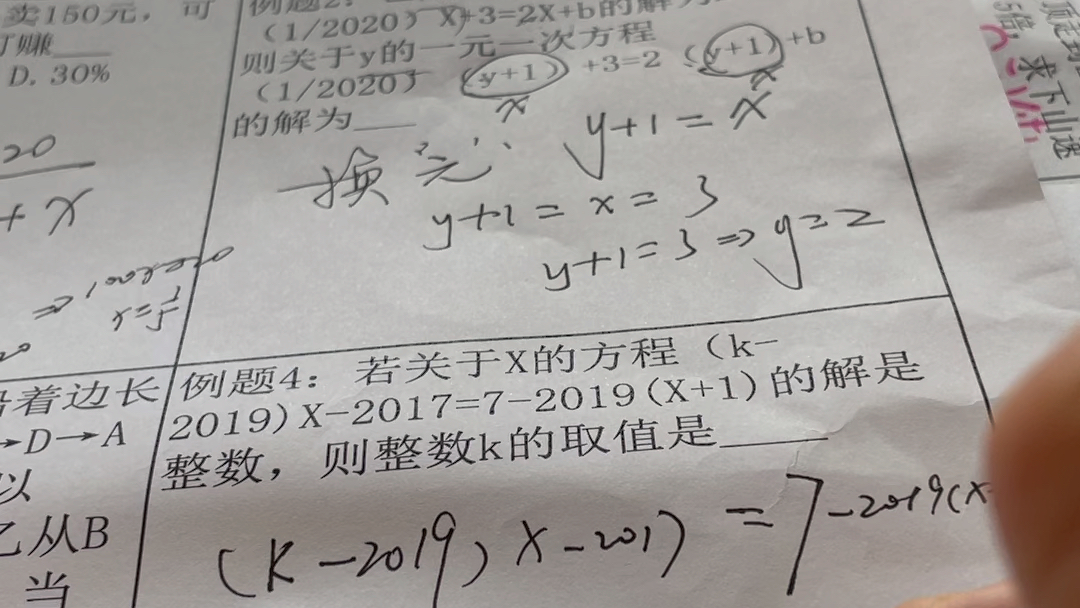 卖150元，可
赚
D. 30%
20
+ x
着边长
→D→A
以
乙从B
当
(1/2020) X+3=2X+b的解
则关于y的一元一次方程
(1/2020) (y+1) +3=2 (y+1) +b
x x
的解为___
换元. y+1=x
y+1=x=3
y+1=3⇒y=2
例题4：若关于X的方程（k-
2019)X-2017=7-2019(X+1)的解是
整数，则整数k的取值是____
(K-2019)X-2017=7-2019(X
求下山速